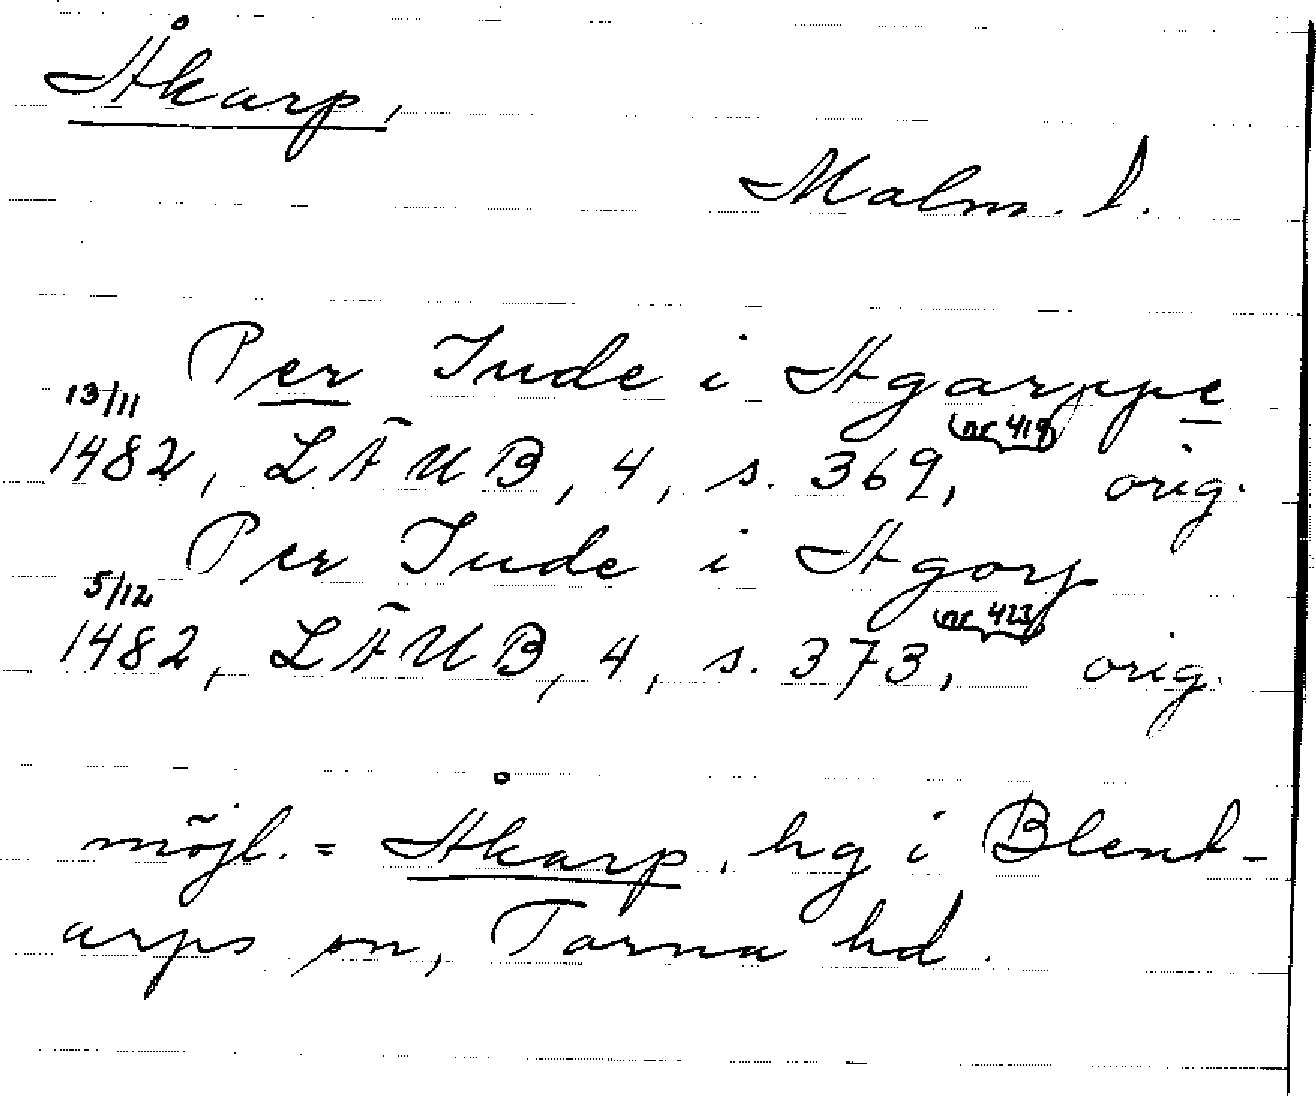 Åkarp,
Malm. l.
Per Jude i Agarppe
13/11
1482, LÄUB, 4, s. 369, (nr 419) orig.
Per Jude i Agorp
5/12
1482, LÄUB, 4, s. 373, (nr 423) orig.
möjl. = Åkarp, hg i Blent-
arps sn, Torna hd.